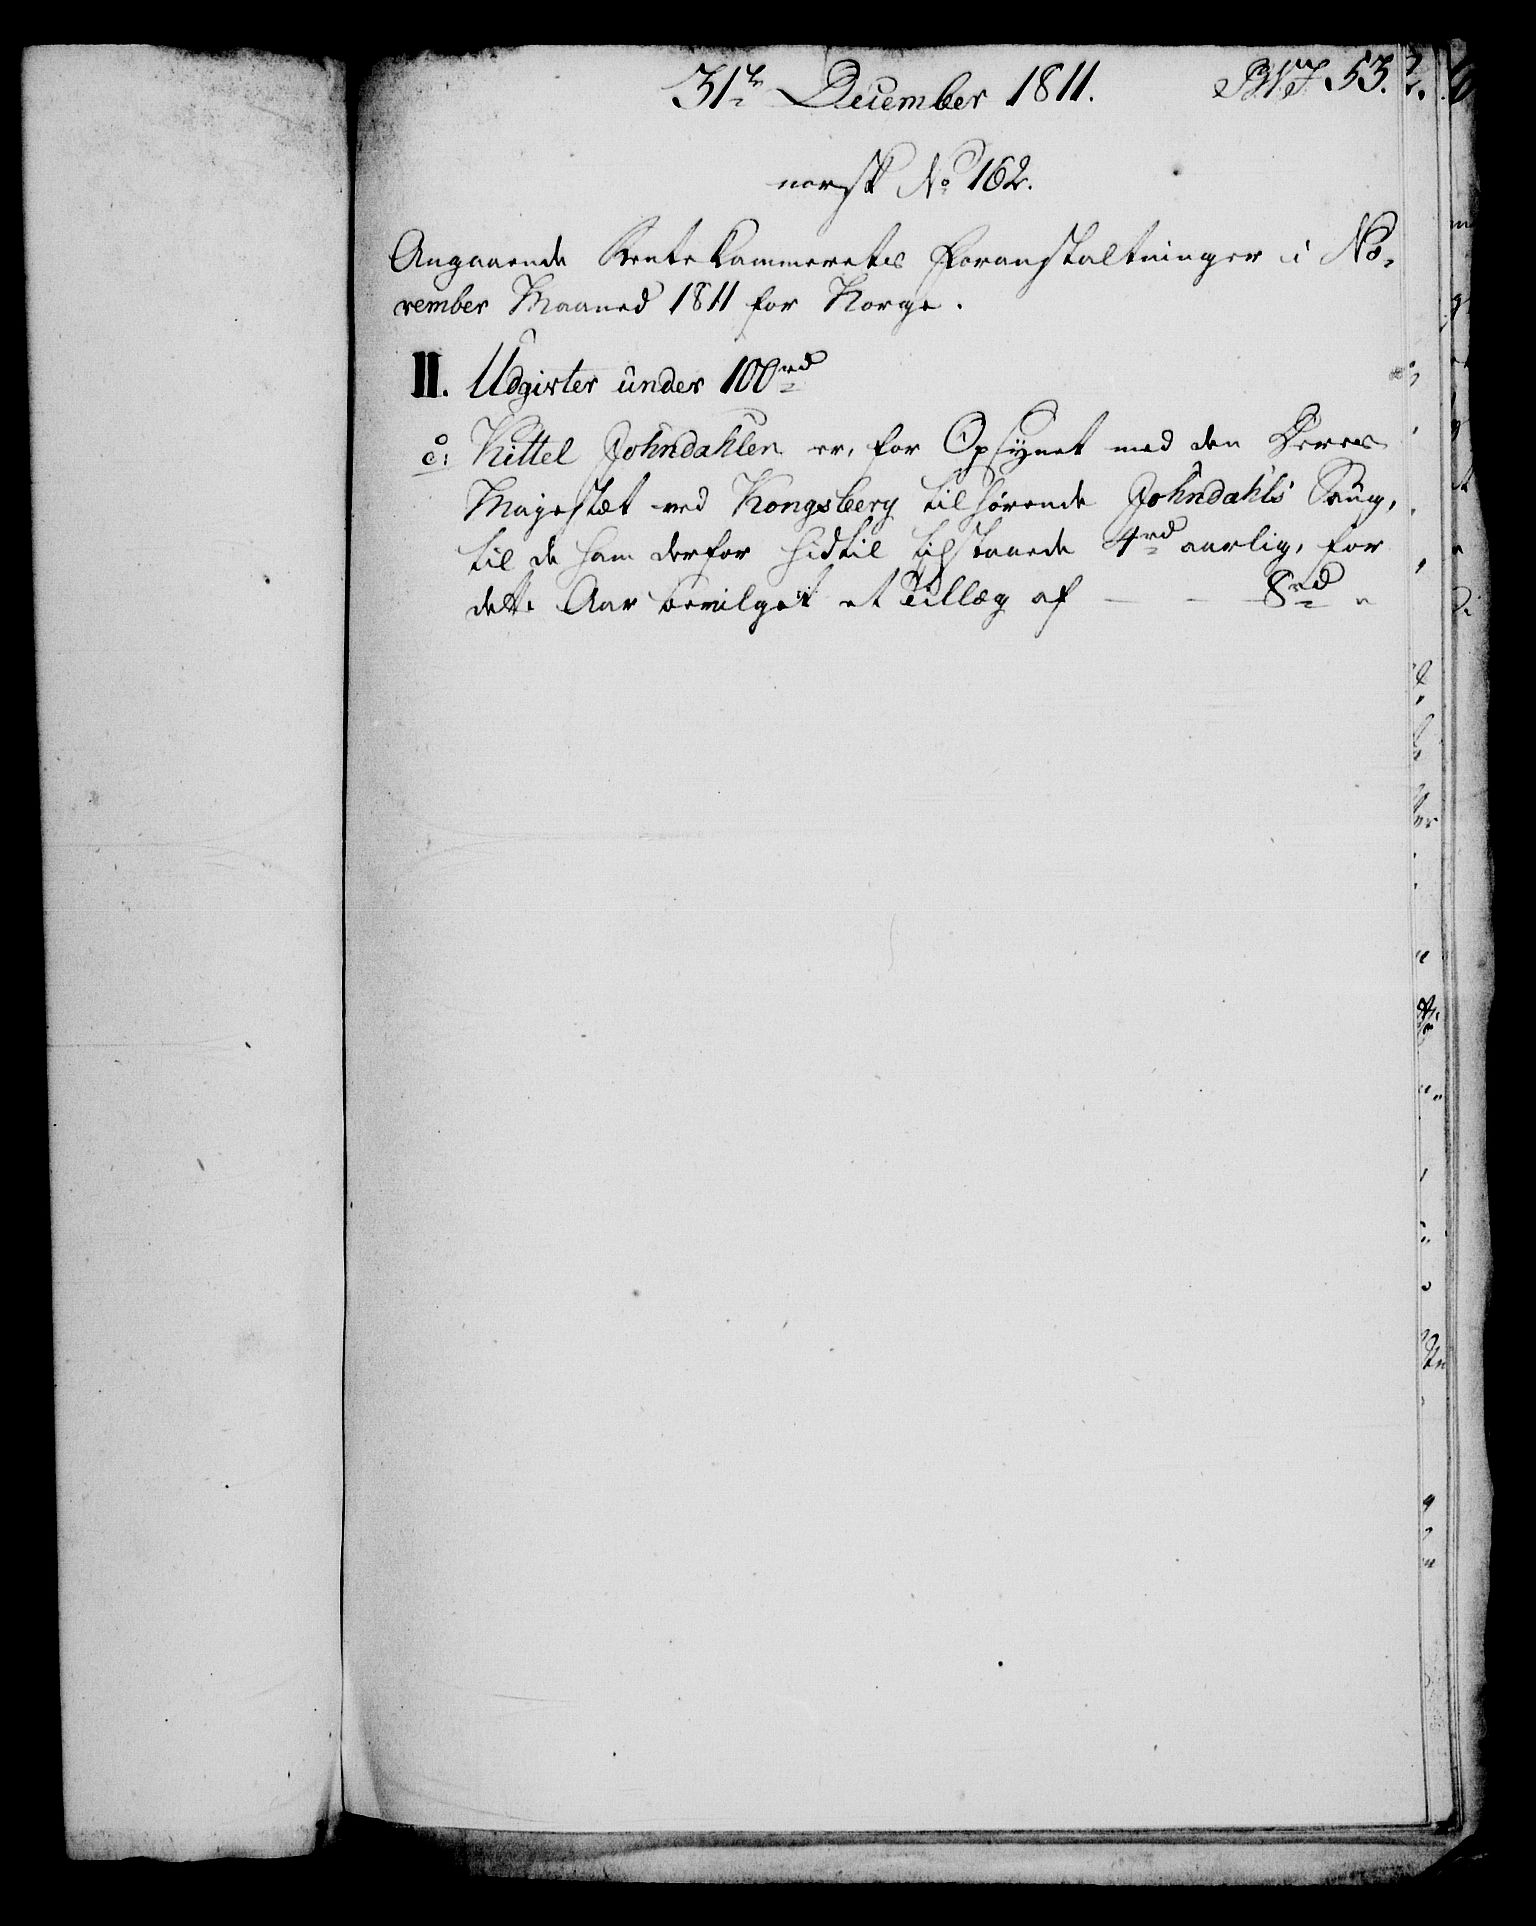 31te December 1811.
53.
norsk No 162.
Angaaende RenteKammerets Foranstaltninger i No-
vember Maaned 1811 for Norge.
II. Udgivter under 100rd
c: Kittel Johndahlen er, for Opsynet med den Deres
Majestæt ved Kongsberg tilhørende Johndahls Saug,
til de ham derfor hidtil tilstaaede 4rd aarlig, for
dette Aar bevilget et Tillæg af — — 8rd "